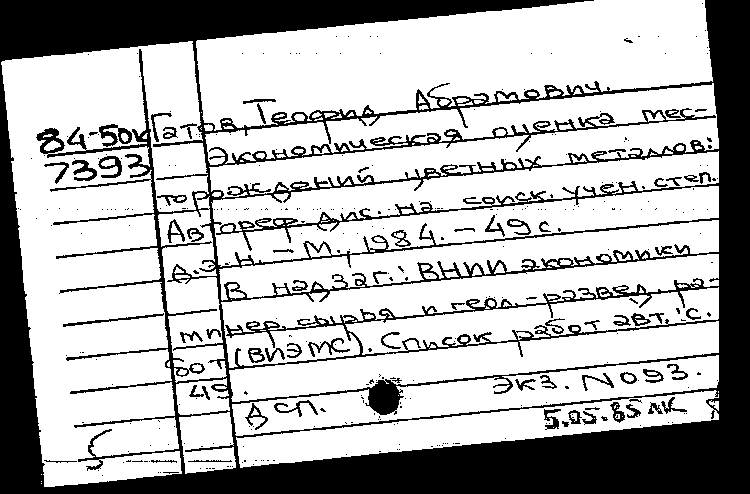 84-50к Гатов, Теофид Абрамович.
7393 Экономическая оценка мес-
торождений цветных металлов:
Автореф. дис. на соиск. учен. степ.
д.э.н. - М., 1984. - 49 с.
В надзаг.: ВНИИ экономики
минер. сырья и геол.-развед. ра-
бот (ВИЭМС). Список работ авт.: с.
49.
Дсп. Экз. N093.
5.05.85 лк